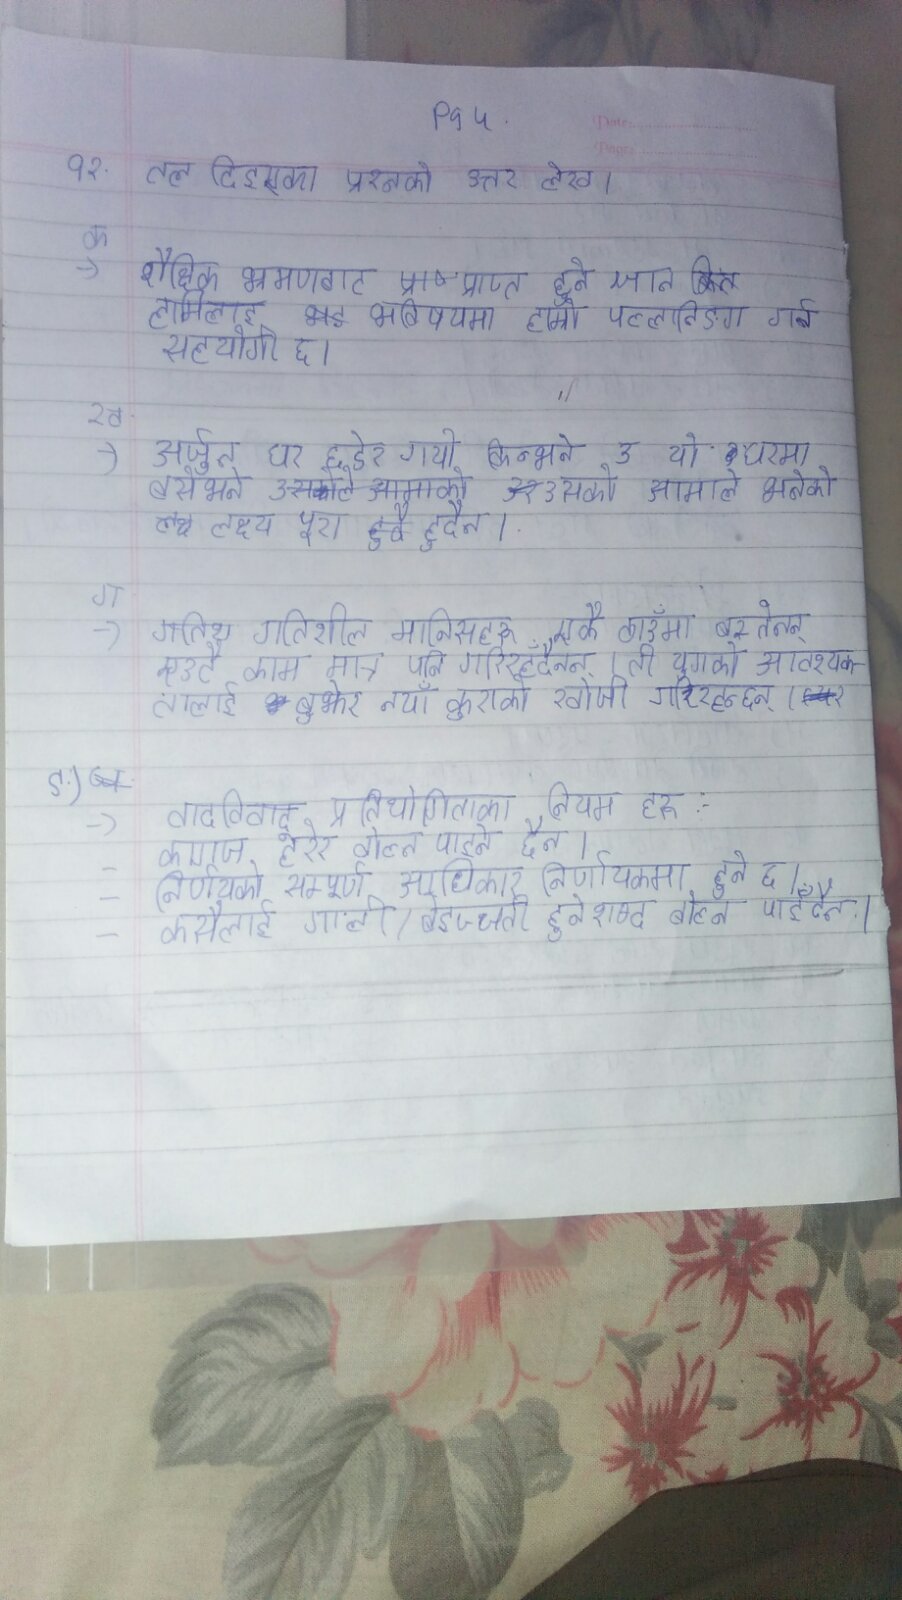 Pg ५.
Date:
Page:
१२. तल दिइएका प्रश्नको उत्तर लेख।
क
→ शैक्षिक भ्रमणबाट प्राप्त हुने ज्ञान
हामिलाइ भबिषयमा हाम्रो पल्लानिङग गर्न
सहयोगी छ।
ख
→ अर्जुन घर छाडेर गयो किन्भने उ यो घरमा
बसेभने उसको आमाले भनेको
लक्ष्य पूरा हुदैन।
ग
→ गतिशील मानिसहरू एकै ठाउँमा बस्तैनन्
एउटै काम मात्र पनि गरिरहँदैनन्। ती युगको आवश्यक-
तालाई बुझेर नयाँ कुराको खोजी गरिरहन्छन्।
ङ)
→ वादविवाद प्रतियोगिताका नियम हरू :-
- कागज हेरेर बोल्न पाइने छैन।
- निर्णयको सम्पूर्ण अधिकार निर्णायकमा हुने छ।
- कसैलाई गाली/बेइज्जती हुने शब्द बोल्न पाइँदैन।